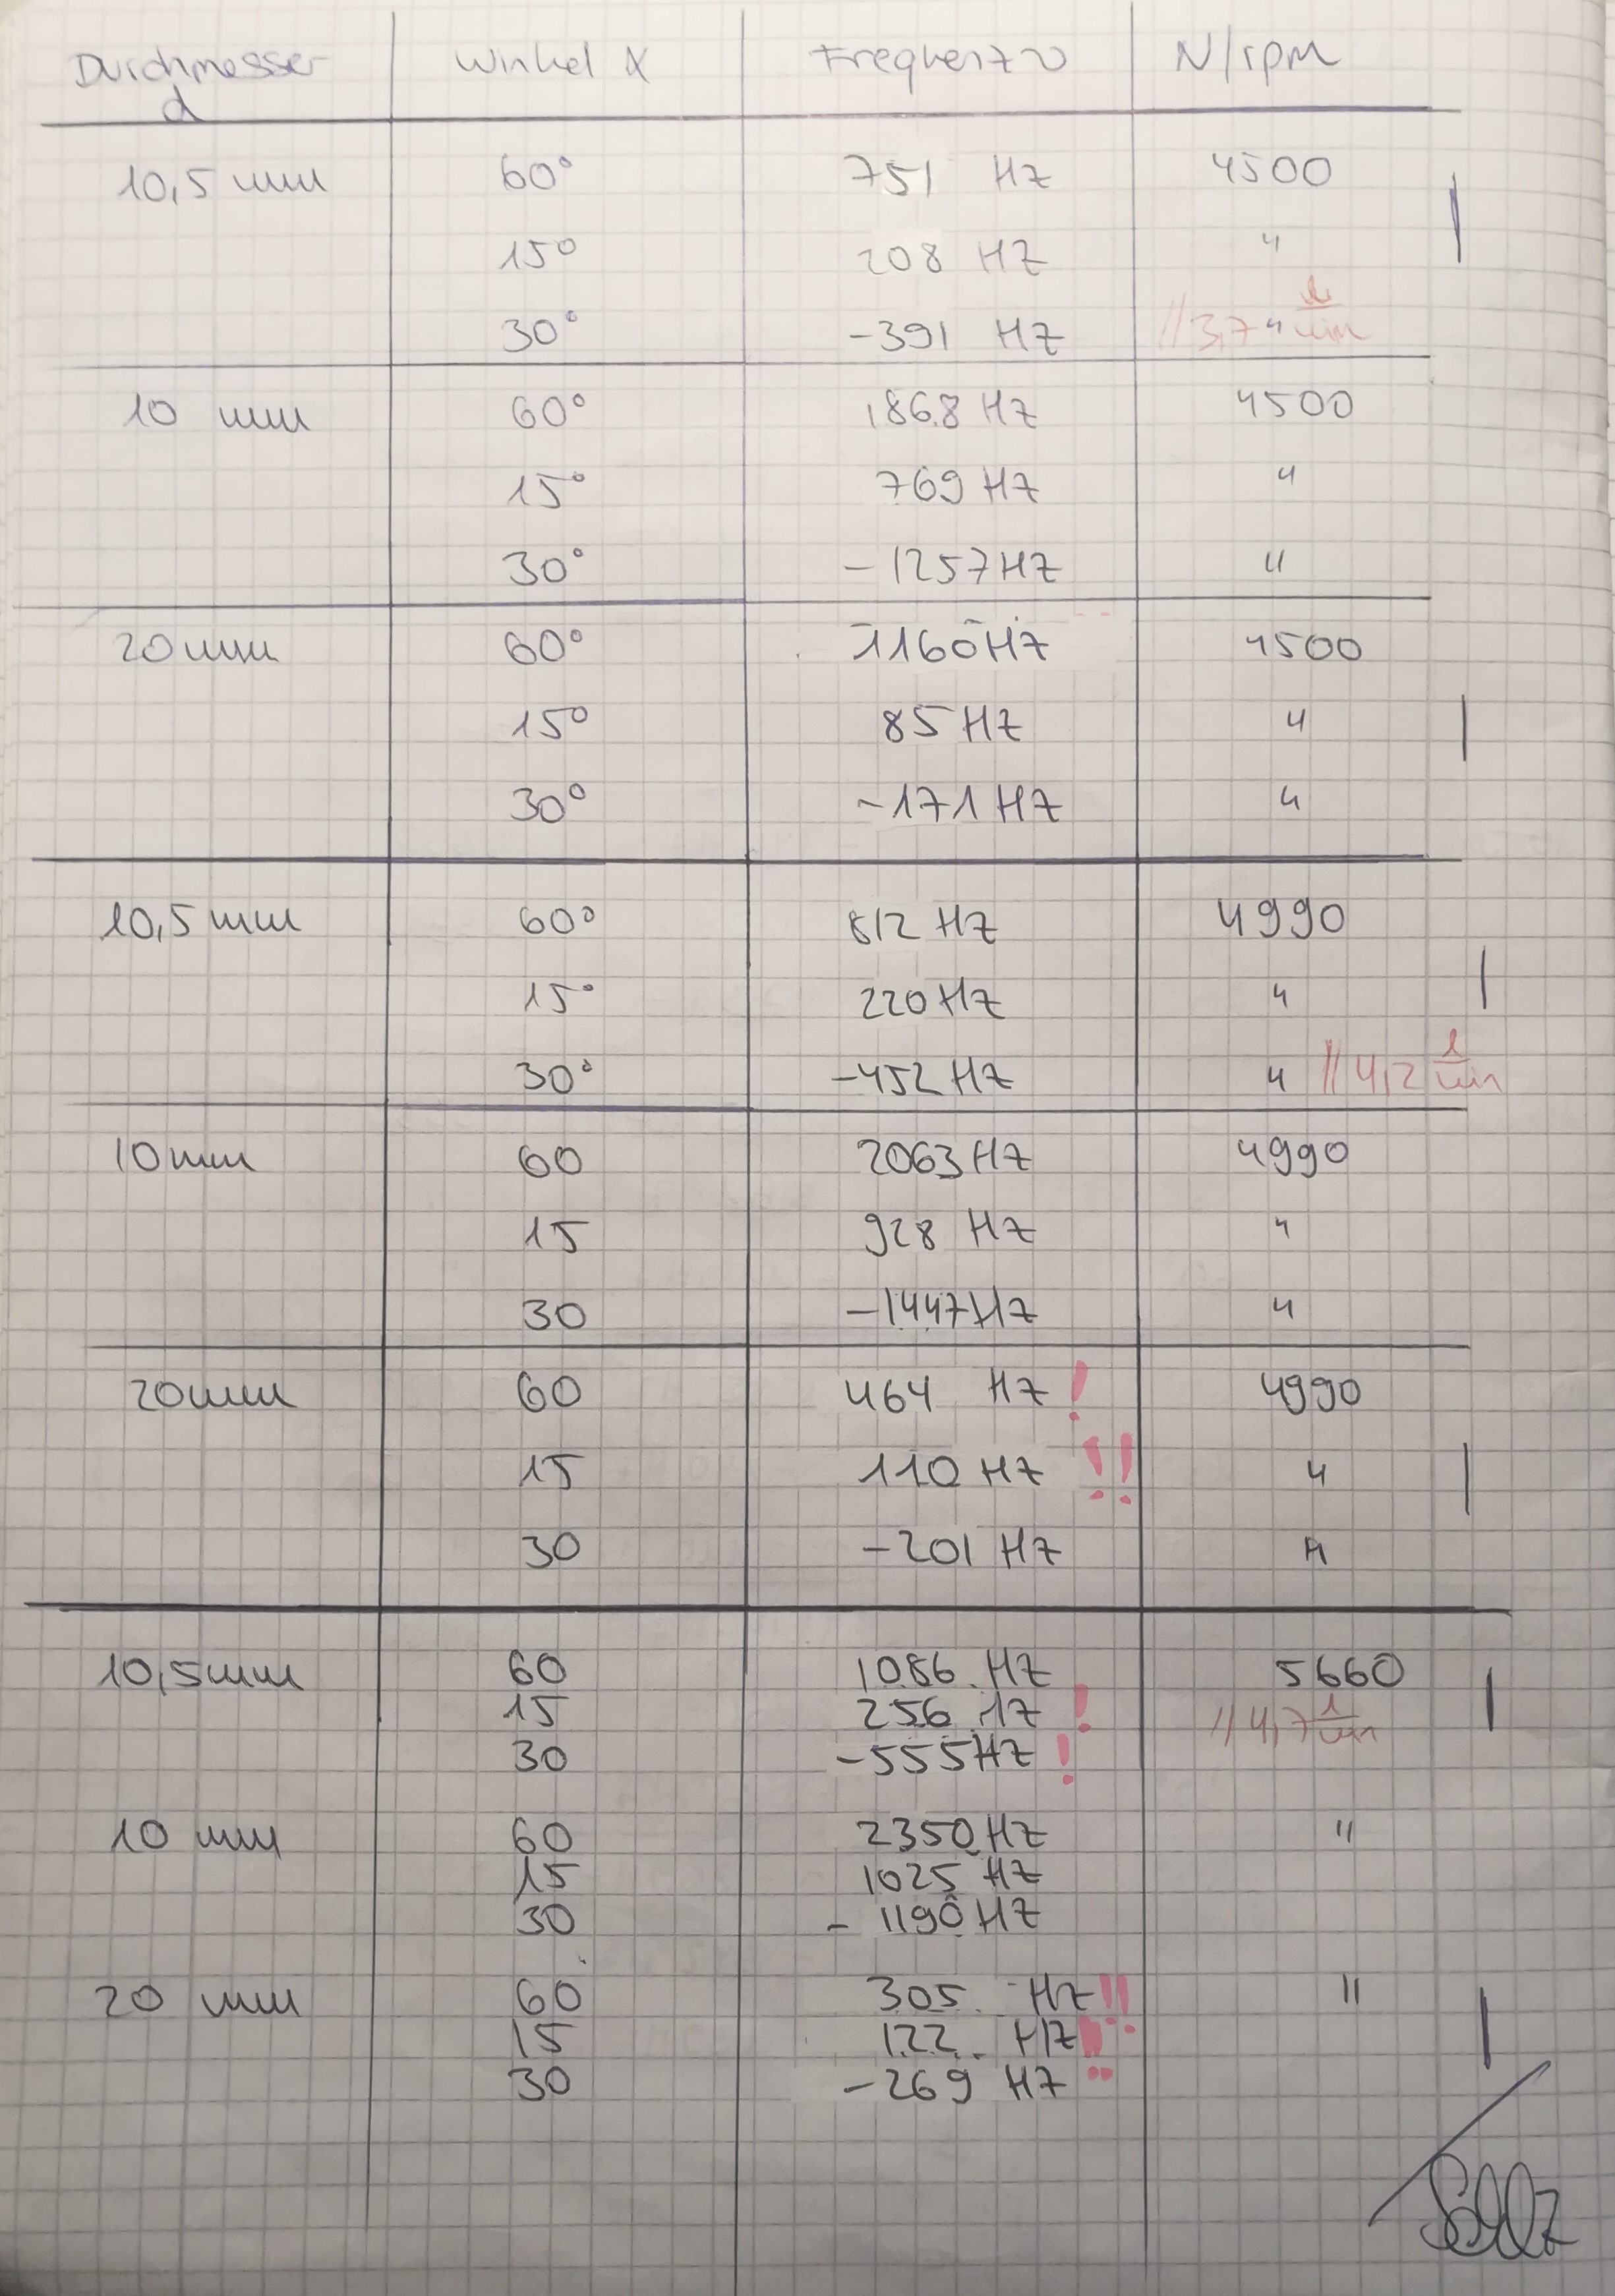 Durchmesser d Winkel α Frequenz ν N/rpm
10,5 mm 60° 751 Hz 4500
15° 208 Hz "
30° -391 Hz " // 3,7 l/min
10 mm 60° 1868 Hz 4500
15° 769 Hz "
30° -1257 Hz "
20 mm 60° 1160 Hz 4500
15° 85 Hz "
30° -171 Hz "
10,5 mm 60° 812 Hz 4990
15° 220 Hz "
30° -452 Hz " // 4,2 l/min
10 mm 60 2063 Hz 4990
15 928 Hz "
30 -1447 Hz "
20 mm 60 464 Hz ! 4990
15 110 Hz !! "
30 -201 Hz "
10,5 mm 60 1086 Hz 5660
15 256 Hz ! // 4,7 l/min
30 -555 Hz !
10 mm 60 2350 Hz "
15 1025 Hz
30 - 1190 Hz
20 mm 60 305 Hz !! "
15 122 Hz !!
30 -269 Hz